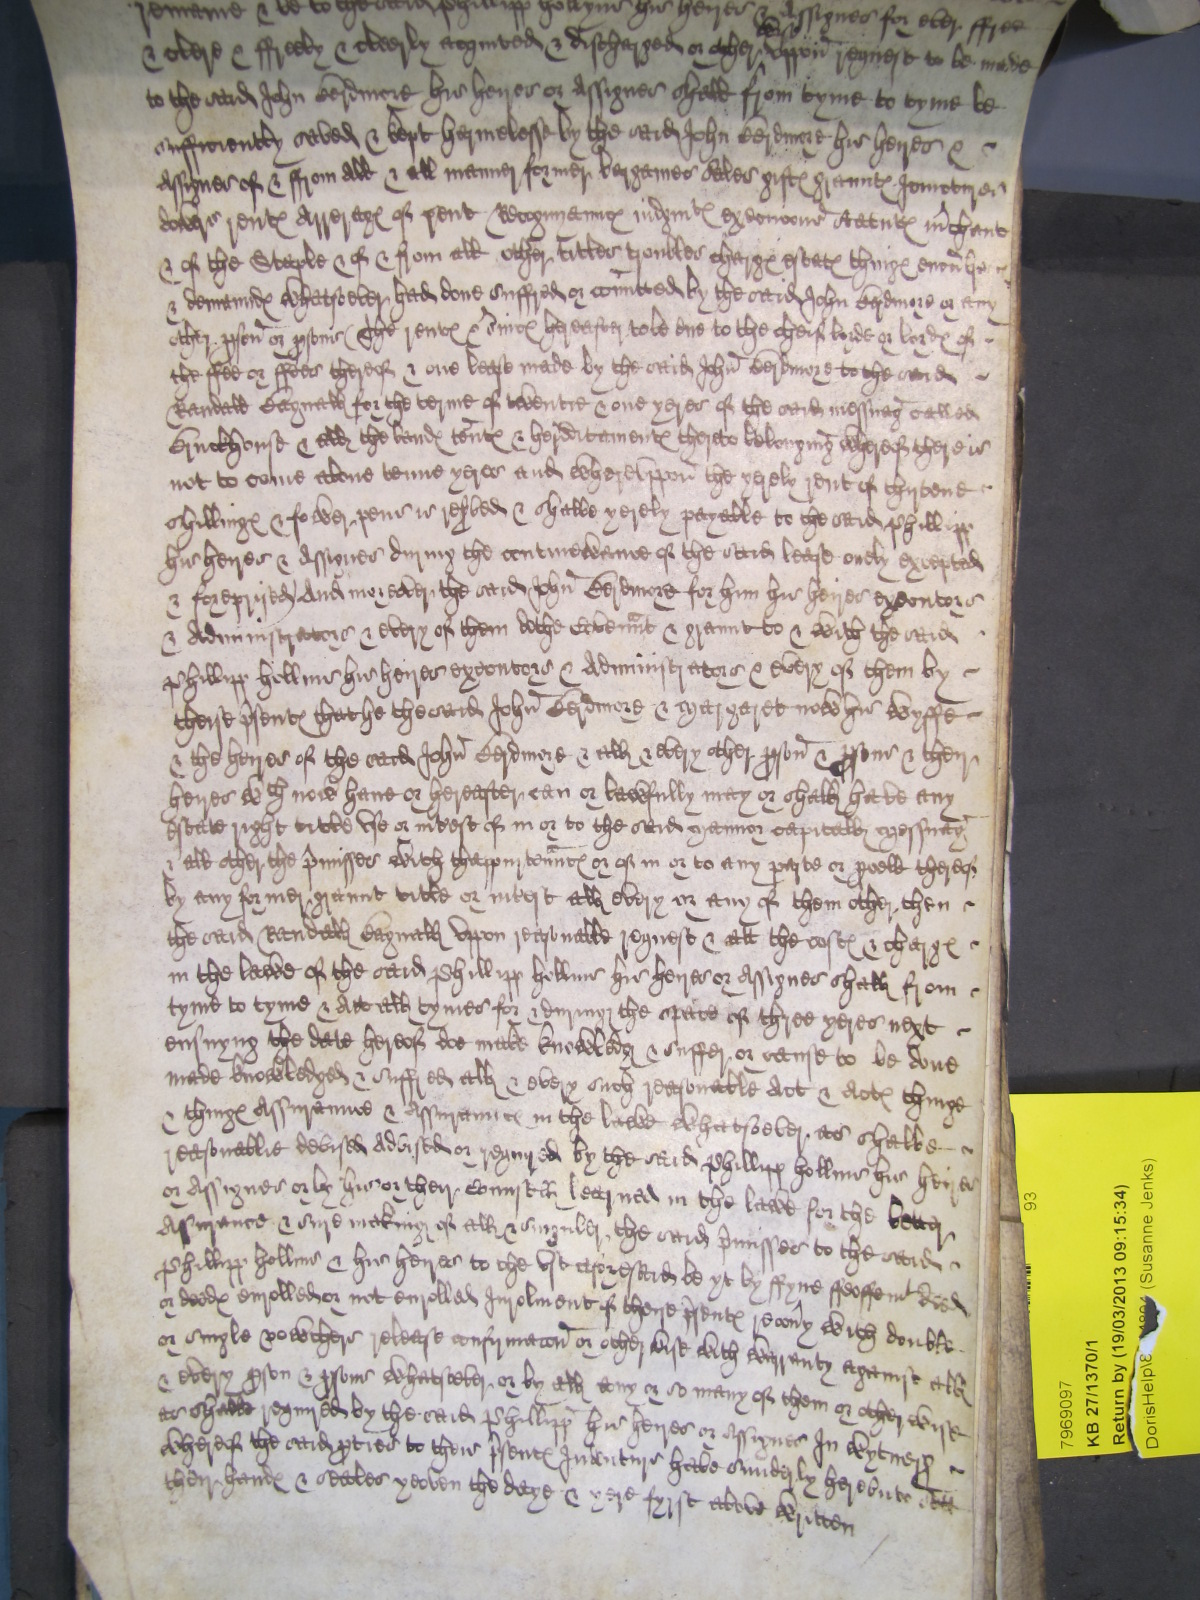 remaine & be to the said Phillipp Hollyns his heires & Assignes for ever ffree
& clere & ffreely & cleerly acquited & discharged or other wyse uppon request to be made
to the said John Berdmore his heires or Assignes shall from tyme to tyme be
sufficiently saved & kept hermelesse by the said John Berdmore his heires &
Assignes of & from all & all manner former bargaines sales giftx grauntx Joincturs
dowers rentx Arreragx of rent Recognisauncx judgmtx execucons Statutx mchant
& of the Staple & of & from all other titles troubles chargx estatx thingx encombr
& demaundx whatsoever had done suffred or comitted by the said John Berdmore or any
other pson or psons The rentx & svicx hereafter tobe due to the cheif lorde or lordx of
the ffee or ffees thereof & one lease made by the said John Berdmore to the said
Randall Bagnall for the terme of twentie & one yeres of the said messuag called
Bruckhouse & all the landx tentx & hereditamentx thereto belonging whereof there is
not to come above tenne yeres and whereuppon the yerely rent of thirtene
shillingx & fower pens is resved & shalbe yerely payable to the said Phillipp
his heires & Assignes during the contynewance of the said lease onely excepted
& foreprised And moreover the said John Berdmore for him his heires executors
& Administrators & every of them dothe Covennt & graunt to & with the said
Phillipp Hollins his heires executors & Administrators & every of them by
theise psentx that he the said John Berdmore & Margaret now his wyffe
& the heires of the said John Berdmore & all & every other pson & psons & their
heires wch now have or hereafter can or lawfully may or shall have any
estate right title Use or intrest of in or to the said Mannor capitall Messuag
& all other the pmisses with thappurtenncx or of in or to any parte or pcell thereof
by any former graunt title or intrest all every or any of them other then
the said Randall Bagnall Uppon reasonable request & att the costx & chargx
in the lawe of the said Phillipp Hollins his heires or Assignes shall from
tyme to tyme & Att all tymes for & during the space of three yeres next
ensuyng the date hereof doe make knowledg & suffer or cause to be done
made knowledged & suffred all & every such reasonable Act & Actx thinge
& thingx Assuraunce & Assurauncx in the lawe whatsoever as shalbe
reasonablie devised advised or required by the said Phillipp Hollins his heires
or Assignes or by his or their Counsell learned in the lawe for the better
Assurance & sure making of all & singuler the said pmisses to the said
Phillipp Hollins & his heires to the Use aforesaid be yt by ffyne ffeoffemt deed
or deedx enrolled or not enrolled Inrolment of theise psentx recovy with double
or single vowchers release confirmacon or other wise with Warranty against all
& every pson & psons whatsoever or by all any or so many of them or other wise
as shalbe required by the said Phillipp his heires or Assignes In wytness
whereof the said pties to theis psentx Indenturs have sunderly hereunto sett
their handx & seales yeoven the daye & yere fyrst above written
93
7969097
KB 27/1370/1
Return by (19/03/2013 09:15:34)
(Susanne Jenks)